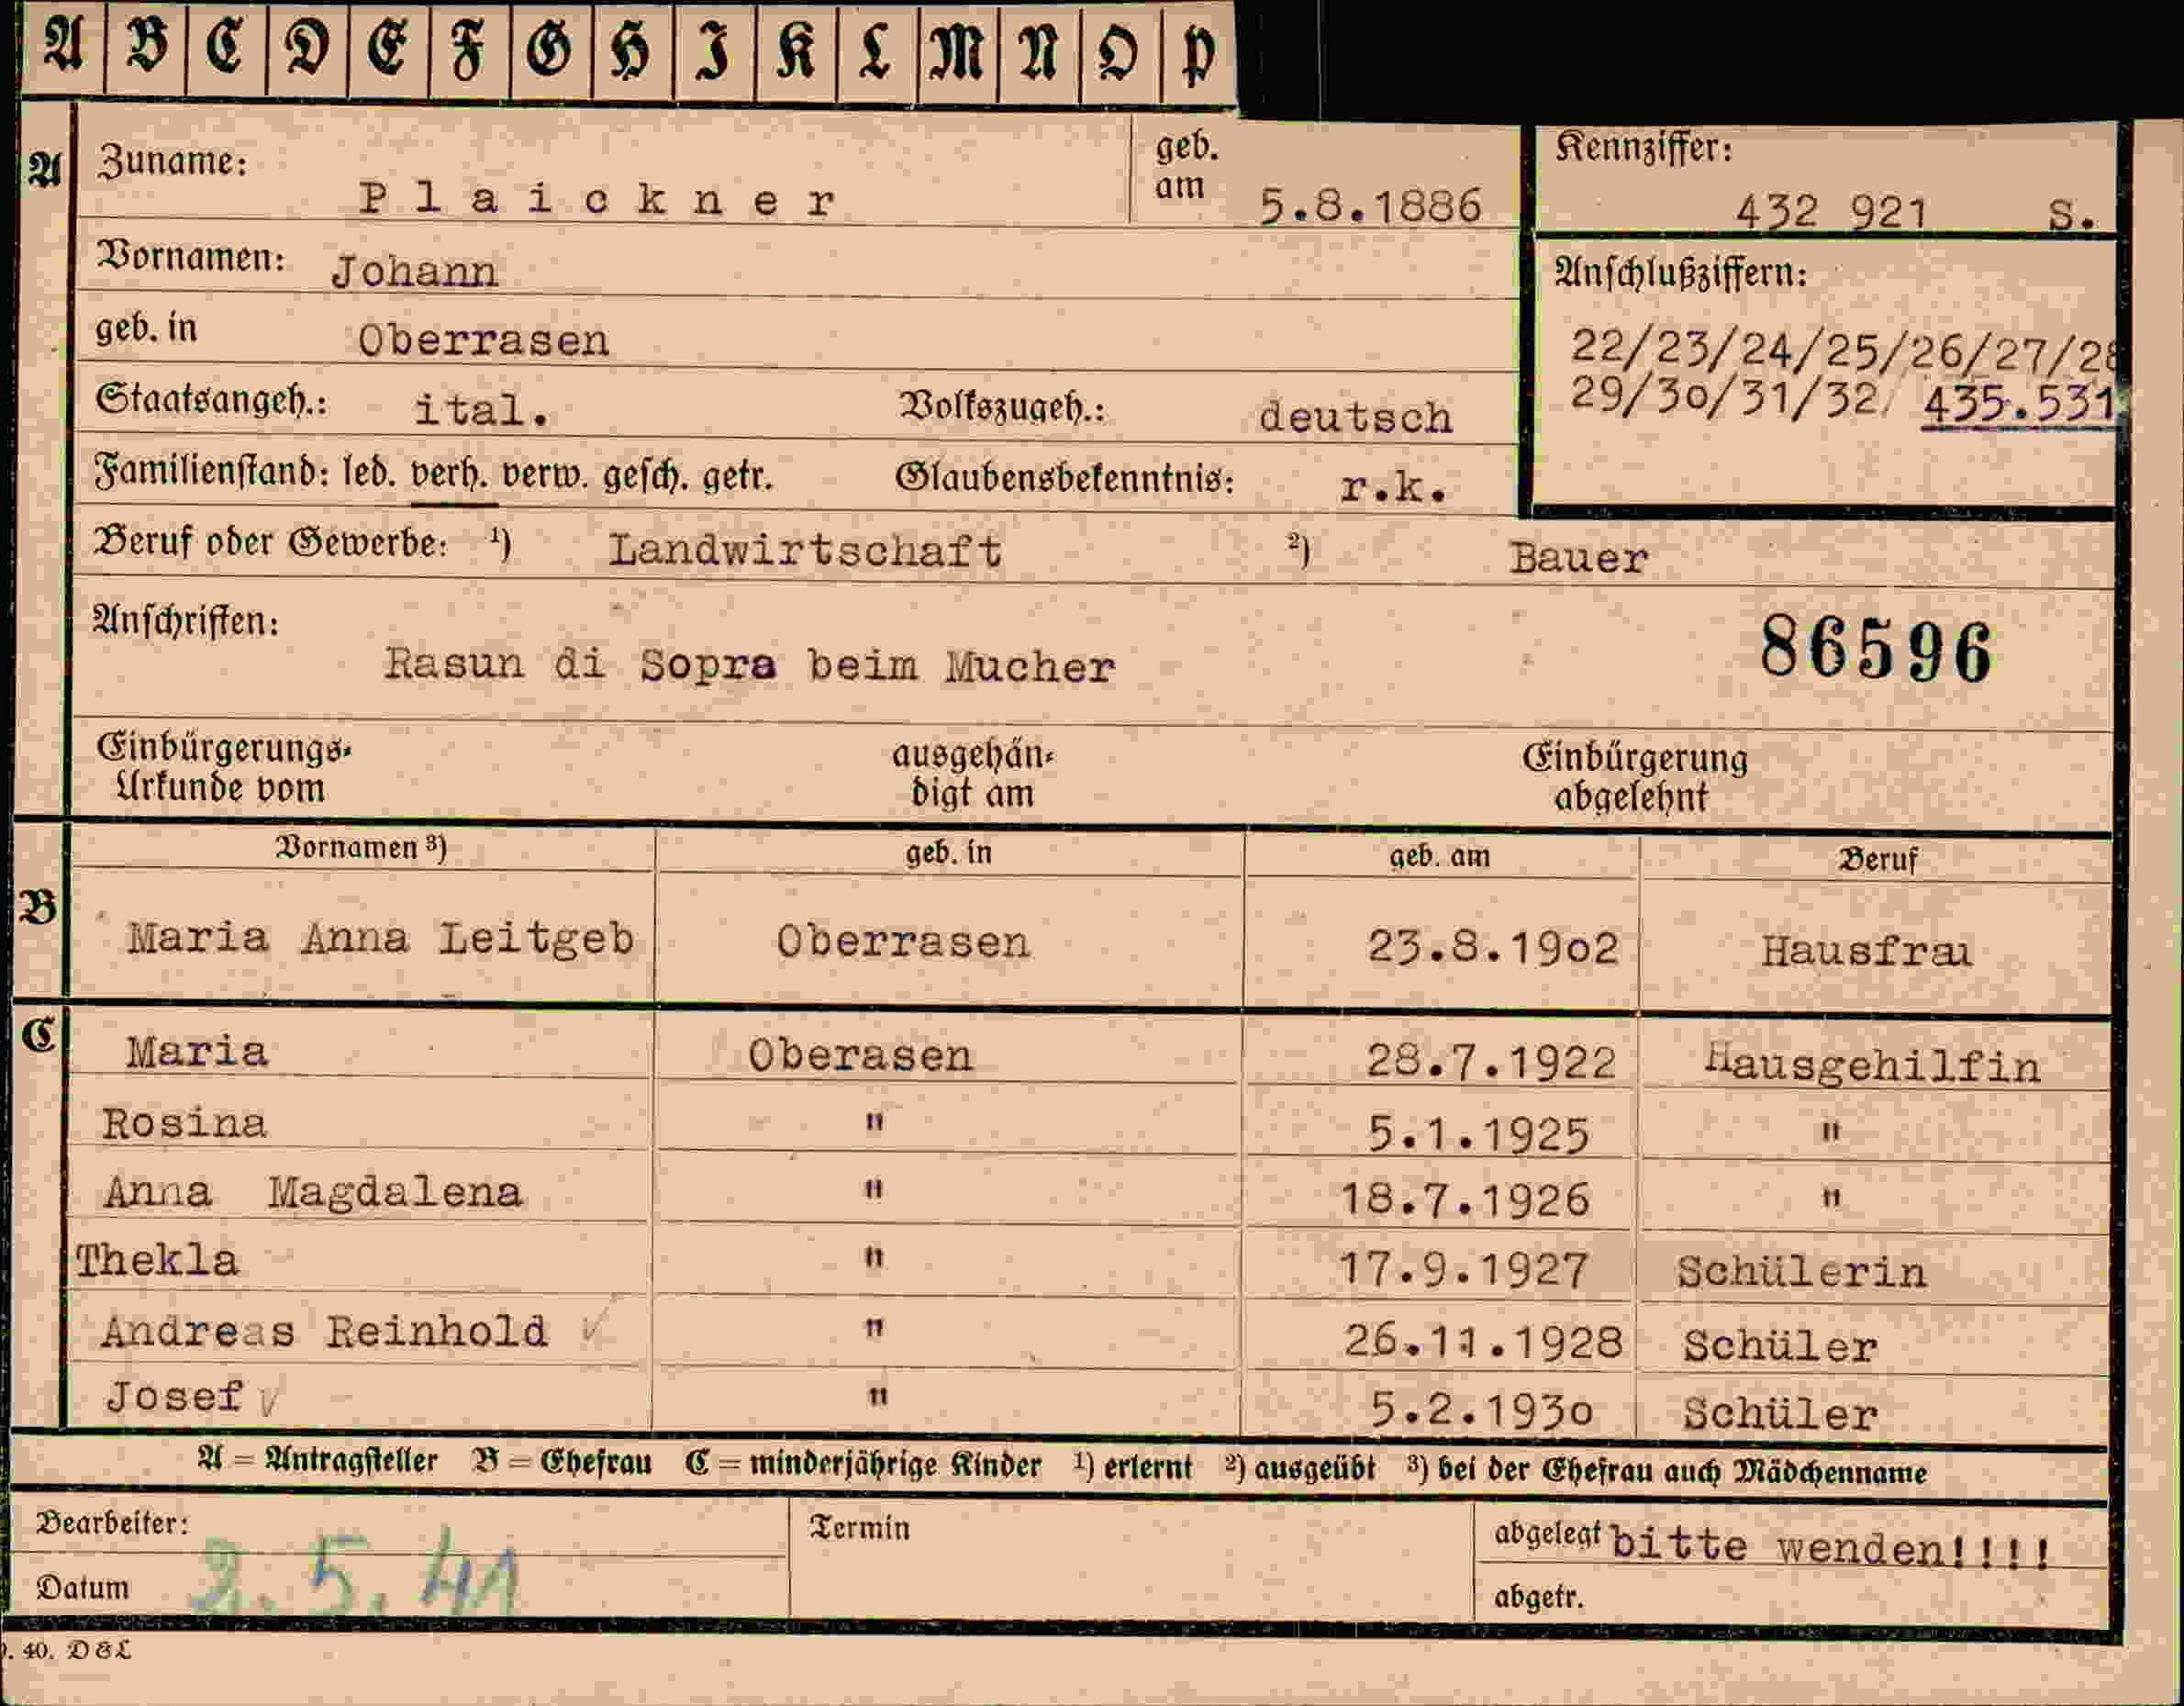 A B C D E F G H I K L M N O P
A Zuname: Plaickner geb. am 5.8.1886
Kennziffer: 432 921 S.
Vornamen: Johann
Anschlußziffern:
geb. in Oberrasen
22/23/24/25/26/27/28
Staatsangeh.: ital. Volkszugeh.: deutsch
29/30/31/32/ 435.531
Familienstand: led. verh. verw. gesch. getr. Glaubensbekenntnis: r.k.
Beruf oder Gewerbe: ¹) Landwirtschaft ²) Bauer
Anschriften:
86596
Rasun di Sopra beim Mucher
Einbürgerungs- ausgehän- Einbürgerung
Urkunde vom digt am abgelehnt
Vornamen ³) geb. in geb. am Beruf
B Maria Anna Leitgeb Oberrasen 23.8.19o2 Hausfrau
C Maria Oberasen 28.7.1922 Hausgehilfin
Rosina " 5.1.1925 "
Anna Magdalena " 18.7.1926 "
Thekla " 17.9.1927 Schülerin
Andreas Reinhold ✓ " 26.11.1928 Schüler
Josef ✓ " 5.2.193o Schüler
A = Antragsteller B = Ehefrau C = minderjährige Kinder ¹) erlernt ²) ausgeübt ³) bei der Ehefrau auch Mädchenname
Bearbeiter: Termin abgelegt bitte wenden!!!!
Datum 2.5.41 abgetr.
40. D&L